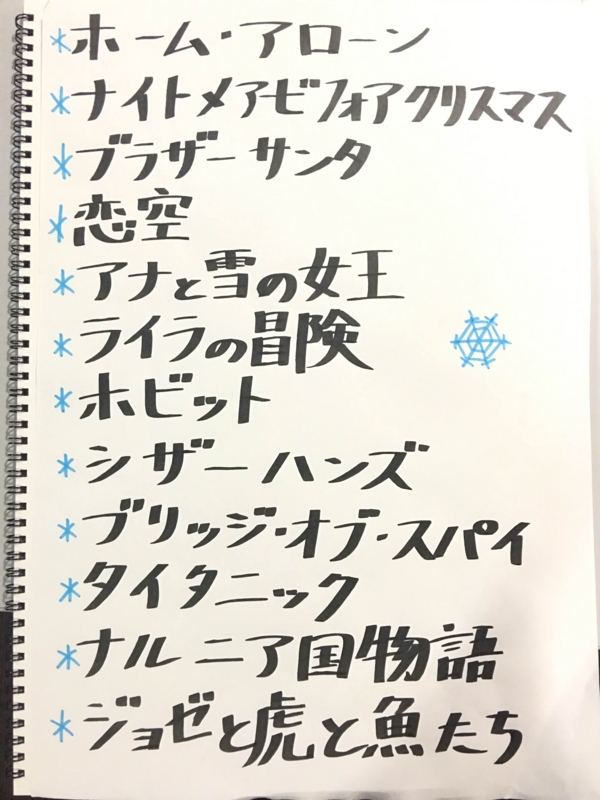 *ホーム・アローン
*ナイトメアビフォアクリスマス
*ブラザーサンタ
*恋空
*アナと雪の女王
*ライラの冒険
*ホビット
*シザーハンズ
*ブリッジ・オブ・スパイ
*タイタニック
*ナルニア国物語
*ジョゼと虎と魚たち